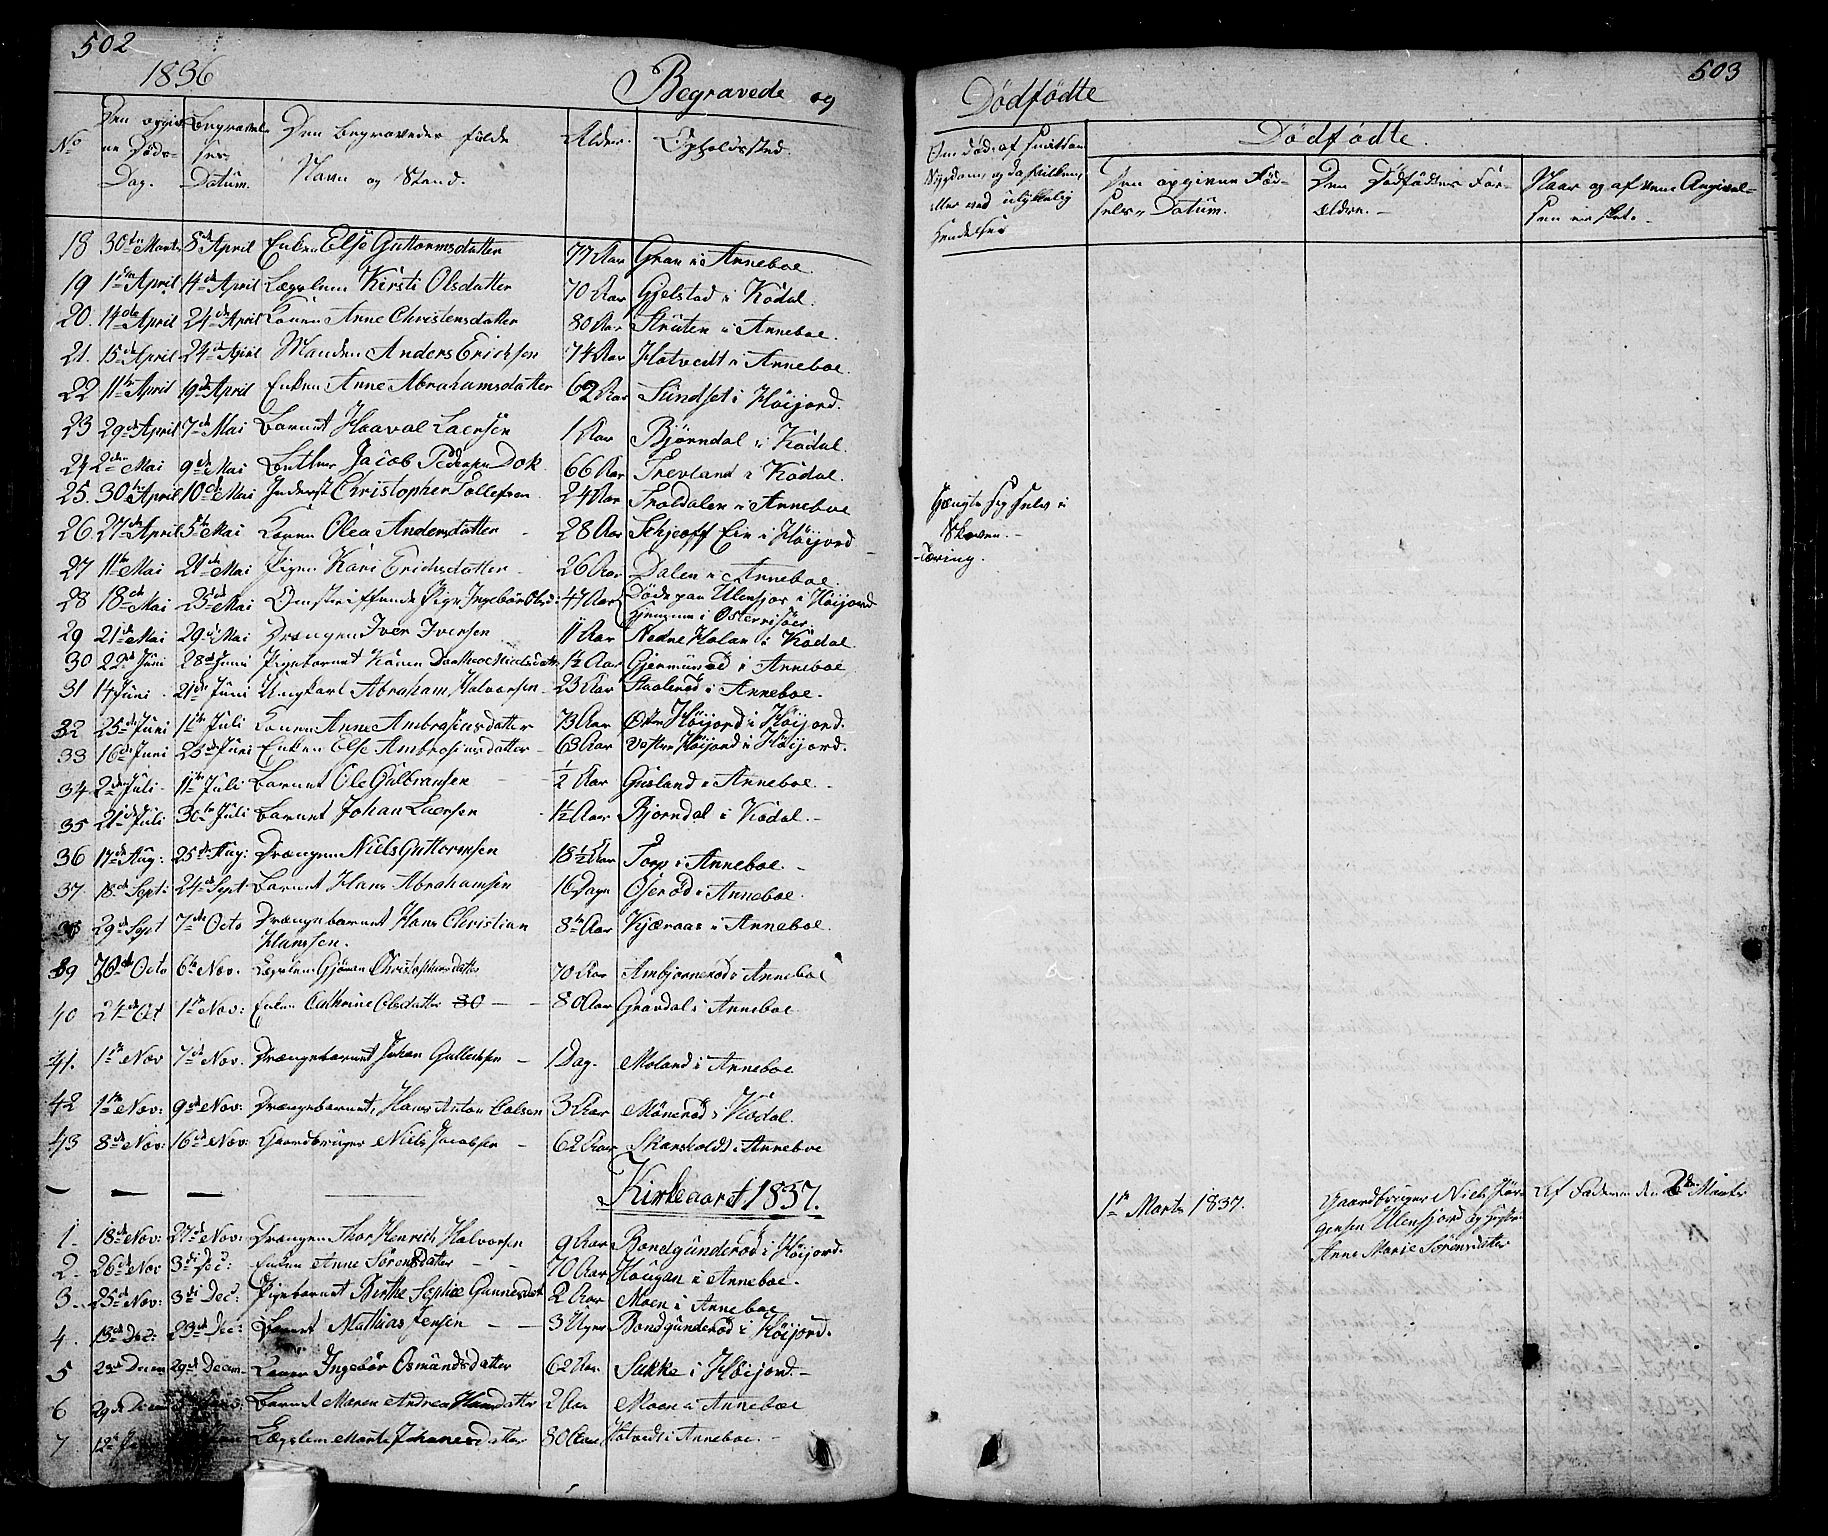 502
1836
Begravede og
No
Den opgivne Døds-Dag.
Begravelses-Datum.
Den Begravedes fulde Navn og Stand.
Alder.
Opholdssted.
18 30te Marts 8de April Enken Else Guttormsdatter 77 Aar Gran i Anneboe.
19 1ste April 14de April Lægslem Kirsti Olsdatter 70 Aar Gjelstad i Kodal.
20. 14de April 24de April Konen Anne Christensdatter 80 Aar Struten i Anneboe.
21. 15de April 24de April Manden Anders Erichsen 74 Aar Hotvedt i Anneboe.
22 11te April 19de April Enken Anne Abrahamsdatter 62 Aar Sundset i Høijord.
23 29de April 7de Mai Barnet Haavol Laersen 1 Aar Bjørndal i Kodal.
24 2den Mai 9de Mai Jacob Pedersen Dok 66 Aar Trevland i Kodal.
25. 30te April 10de Mai Inderst Christopher Tollefsen 24 Aar Troldalen i Anneboe
26. 27de April 5te Mai Konen Olea Andersdatter - 28 Aar Schjeoff Eie i Høijord -
27 11te Mai 21de Mai Pigen Kari Erichsdatter - 26 Aar Dalen i Anneboe.
28 18de Mai 23de Mai Omstreiffende Pige Ingebør Olsd: 47 Aar Døde paa Ulensjor i Høijord
hjemme i Osterrisöer.
29 21de Mai 29de Mai Drængen Iver Iversen 11 Aar Nedre Holan i Kodal
30 22de Juni 28de Junii Pigebarnet Karen Dorthea Nielsdatr 1½ Aar Gjermunrod i Anneboe
31 14 Juni. 21de Juni Ungkarl Abraham Halvorsen - 23 Aar Staalerød i Anneboe.
32 25de Juni 11te Juli Konen Anne Ambrosiusdatter 73 Aar Østre Høijord i Høijord.
33 16de Juni 25de Juni Enken Else Ambrosiusdatter - 63 Aar Vestre Høijord i Høijord.
34 2de Juli 11te Juli Barnet Ole Gulbransen - - ½ Aar Gusland i Anneboe. -
35 21de Juli 30te Juli Barnet Johan Laersen 1½ Aar Bjorndal i Kodal. -
36 17de Aug: 25de Aug: Drængen Niels Guttormsen 18½ Aar Torp i Anneboe. -
37. 18de Sept: 24de Sept Barnet Hans Abrahamsen - 16 Dage Oserød i Anneboe.
38 29de Sept 7de Octo Drængebarnet Hans Christian
Hanssen. 8te Aar Kjæraas i Anneboe.
39 de Octo 6te Nov. Lægslem Gjøren Christophersdatter 70 Aar Ambjornerød i Anneboe
40 24de Oct 1ste Nov: Enken Cathrine Olesdatter 30 - - 80 Aar Gravdal i Anneboe
41. 1ste Nov 7de Nov. Drængebarnet Johan Gullichsen - 1 Dag. Moland i Anneboe
42 1ste Nov: 9de Nov: Drængebarnet, Hans Anton Colsen 3 Aar Mønerød i Kodal.
43 8de Nov: 16de Nov: Gaardbruger Niels Jacobsen - 62 Aar Skarsholdt i Anneboe
Kirkeaaret 1837.
1. 18de Nov: 27de Nov: Drængen Thor Henrich Halvorsen 9 Aar Bondgunderød i Høijord.
2. 26de Nov 3de Dec: Enken Anne Sörensdatter - - 70 Aar Hougan i Anneboe.
3.. 25de Nov: 3de Dec: Pigebarnet Berthe Sophie Gunnersdat 2 Aar Moen i Anneboe
4. 13de Dec: 23de Dec: Barnet Mathias Jensen - - 3 Uger Bondgunderød i Høijord.
5 23de Decem 29de Decem- Konen Ingebør Osmundsdatter 62 Aar Sukke i Høijord. -
6 29de Decem Barnet Maren Andrea Hansdatter 2 Aar Moen i Anneboe
7 12te Lægslem Marte Johannesdatter 80 Aar Hotvedt i Anneboe. -
503
Dödfödte
Om död af smitsom Sygdom, og da hvilken, eller ved ulykkelig Hendelse
Dödfödte.
Den opgivne Fødsels-Datum.
Den Dödfödtes Forældre.-
Naar og af vem Angivelsen er skét.-
Hængte sig selv i
Skoven.-
-Tæring.
1ste Marts 1837.
Gaardbruger Niels Jør-
gensen Ulensjord og Hustru
Anne Marie Sörensdatter
Af Faderen den 2den Marts